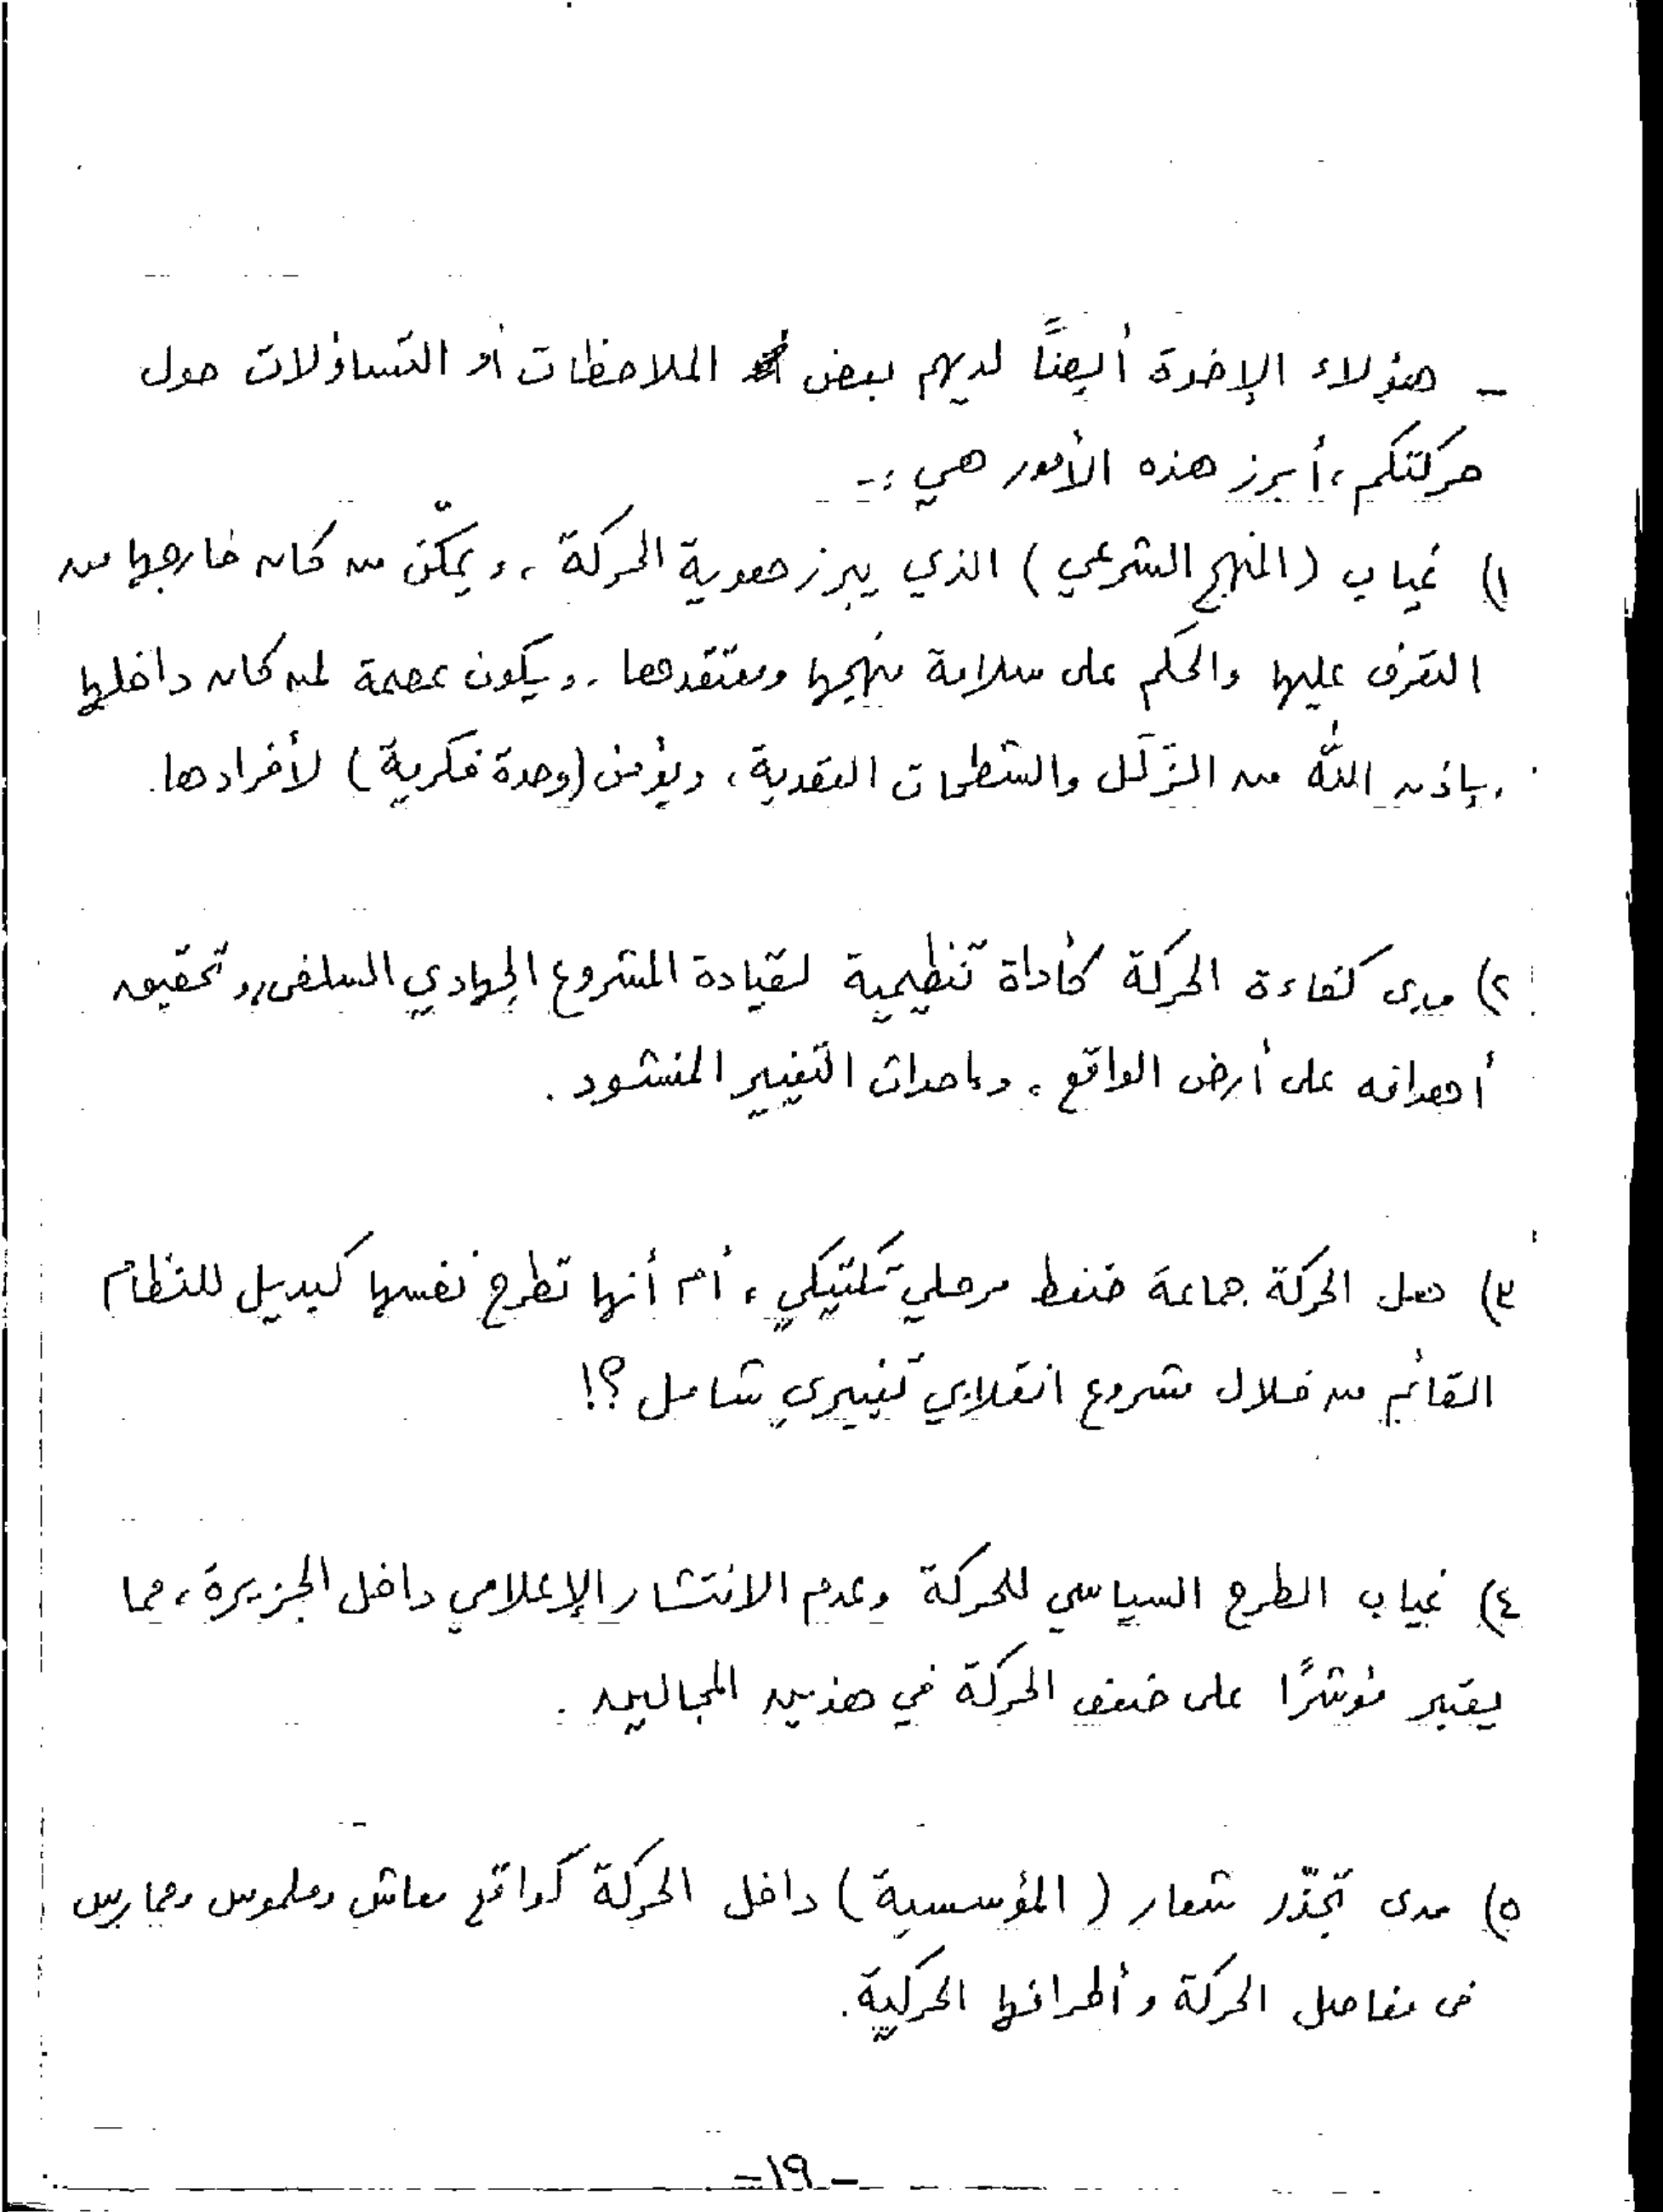 - هؤلاء الإخوة أيضًا لديهم بعض الملاحظات أو التساؤلات حول
حركتكم، أبرز هذه الأمور هي :-
١) غياب (المنهج الشرعي) الذي يبرز هوية الحركة ، ويمكّن من كان خارجها من
التعرف عليها والحكم على سلامة منهجها ومعتقدها . ويكون عصمة لمن كان داخلها
بإذن الله من الزَّلَل والشطحات العقدية، ويؤمن (وحدة فكرية) لأفرادها.
٢) مدى كفاءة الحركة كأداة تنظيمية لقيادة المشروع الجهادي السلفي، وتحقيق
أهدافه على أرض الواقع ، وإحداث التغيير المنشود .
٣) هل الحركة جماعة ضغط مرحلي تكتيكي ، أم أنها تطرح نفسها كبديل للنظام
القائم من خلال مشروع انقلابي تغييري شامل ؟!
٤) غياب الطرح السياسي للحركة وعدم الانتشار الإعلامي داخل الجزيرة، مما
يعتبر مؤشرًا على ضعف الحركة في هذين المجالين .
٥) مدى تجذّر شعار (المؤسسية) داخل الحركة كواقع معاش وملموس وممارس
في مفاصل الحركة وأطرافها الحركية.
- ١٩ -